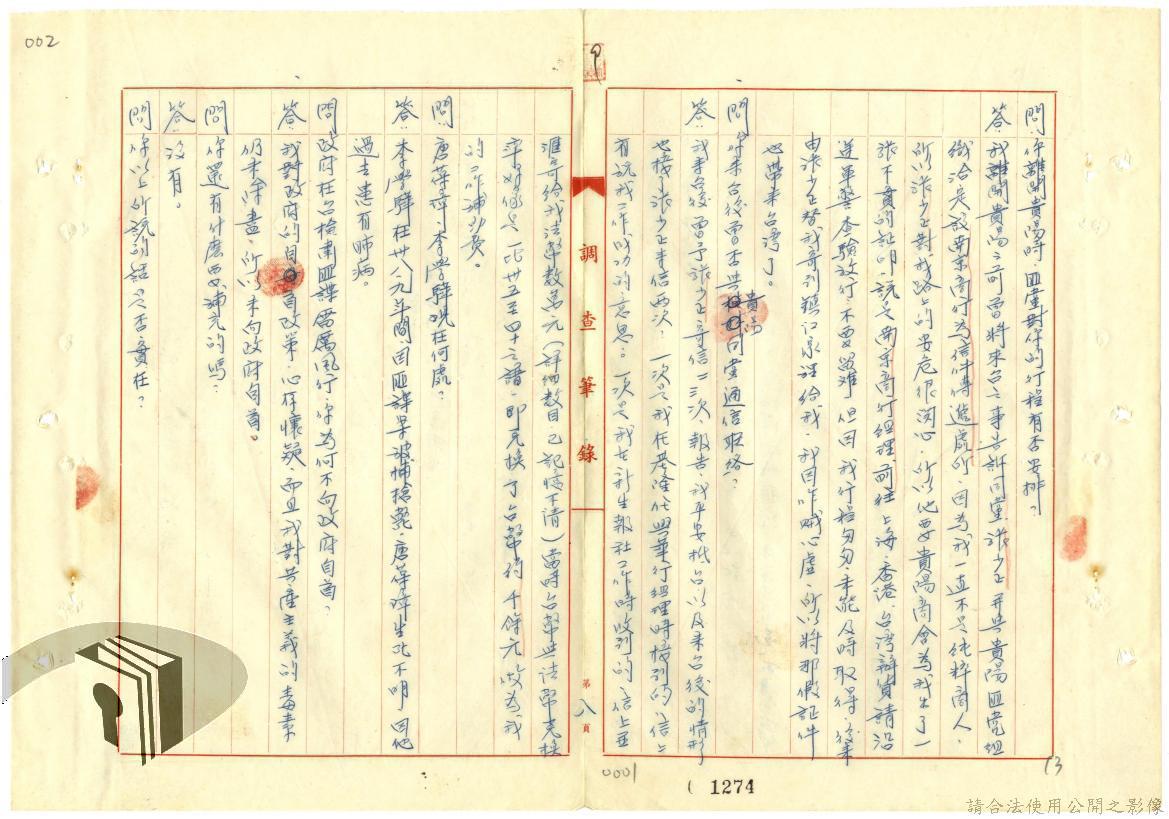 002
問：你離開貴陽時，匪黨對你的行程有否安排？
答：我離開貴陽之前曾將來台之事告訴同黨 並與貴陽匪黨組
織洽定以南京商行為信件傳遞處所，因為我一直不是純粹商人，
所以 對我路上的安危很関心，所以他要貴陽商會為我出了一
張不實的証明，說是南京商行經理，前往上海、香港、台灣辦貨請沿
途軍警查驗放行，不要留难，但因我行程匆匆，未能及時取得，後來
由 替我寄到鎮江家裡給我，我因作賊心虛，所以將那假証件
也帶来台湾了。
問：你来台後曾否與貴陽同黨通信联絡？
答：我来台後曾予 寄信二三次，報告我平安抵台以及来台後的情形
也接了 来信两次，一次是我在基隆 興華行經理時接到的，信上
有説我工作成功的意思。一次是我在新生報社工作時收到的，信上並
匯寄給我法幣数萬元（詳细数目，已記憶不清）當時台幣與法幣兑换
率好像是一比卅五至四十之譜，即兑换了台幣約千餘元，做為我
的工作補助費。
問：唐 李學驊現在何處？
答：李學驊在卅八、九年間，因匪諜案被捕槍斃，唐 生死不明，因他
過去患有肺病。
問：政府在台檢肅匪諜厲厲風行，你為何不向政府自首？
答：我對政府的自首政策，心存懷疑，而且我對共產主義的毒素
仍未除盡，所以未向政府自首。
問：你還有什麽要補充的嗎？
答：没有。
問：你以上所説的話是否實在？
調查筆錄
第八頁
0001
( 1274
13
請合法使用公開之影像